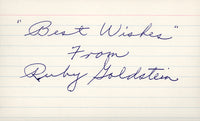 "Best Wishes"
From
Ruby Goldstein